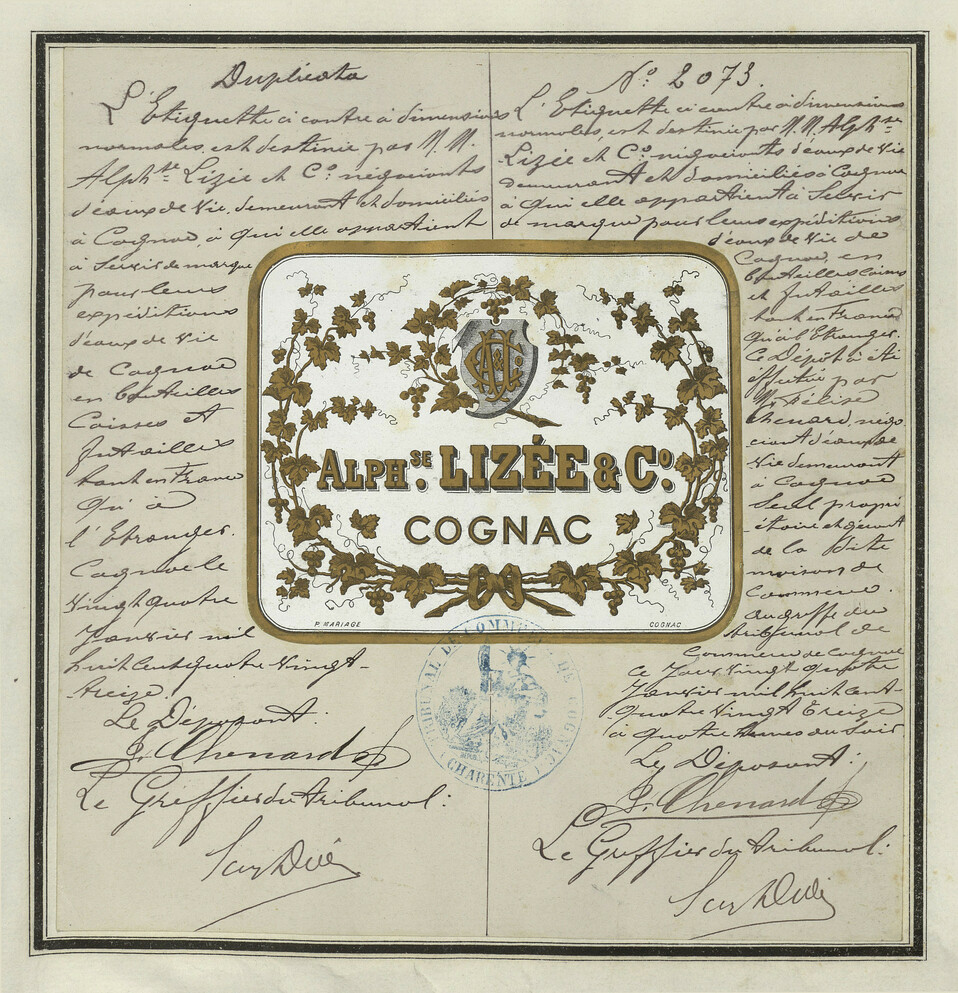 Duplicata
L'Etiquette ci contre à dimensions
normales, est destinée par M.M.
Alph.se Lizée et Co. négociants
d'eaux de Vie, demeurant et domiciliés
à Cognac, à qui elle appartient
à Servir de marque
pour leurs
expéditions
d'eaux de Vie
de Cognac
en bouteilles
Caisses et
futailles
tant en France
qu'à
l'Etranger.
Cognac le
Vingt quatre
Janvier mil
huit cent quatre vingt-
treize.
Le Déposant:
Chenard
Le Greffier du tribunal:
No. 2073.
L'Etiquette ci contre à dimensions
normales, est destinée par M.M. Alph.se
Lizée et Co. négociants d'eaux de Vie
demeurant et domiciliés à Cognac
à qui elle appartient à Servir
de marque pour leurs expéditions
d'eaux de Vie de
Cognac, en
bouteilles Caisses
et futailles
tant en France
qu'à l'Etranger.
Ce Dépôt a été
effectué par
Chenard, négo-
ciant d'eaux de
Vie demeurant
à Cognac
Seul propri-
étaire et gérant
de la dite
maison de
Commerce.
au greffe du
tribunal de
Commerce de Cognac
ce Jour Vingt quatre
Janvier mil huit cent-
quatre vingt treize
à quatre heures du Soir
Le Déposant:
Chenard
Le Greffier du tribunal:
ALPHSE. LIZÉE & CO.
COGNAC
P. MARIAGE COGNAC
TRIBUNAL DE COMMERCE DE COGNAC
(CHARENTE)